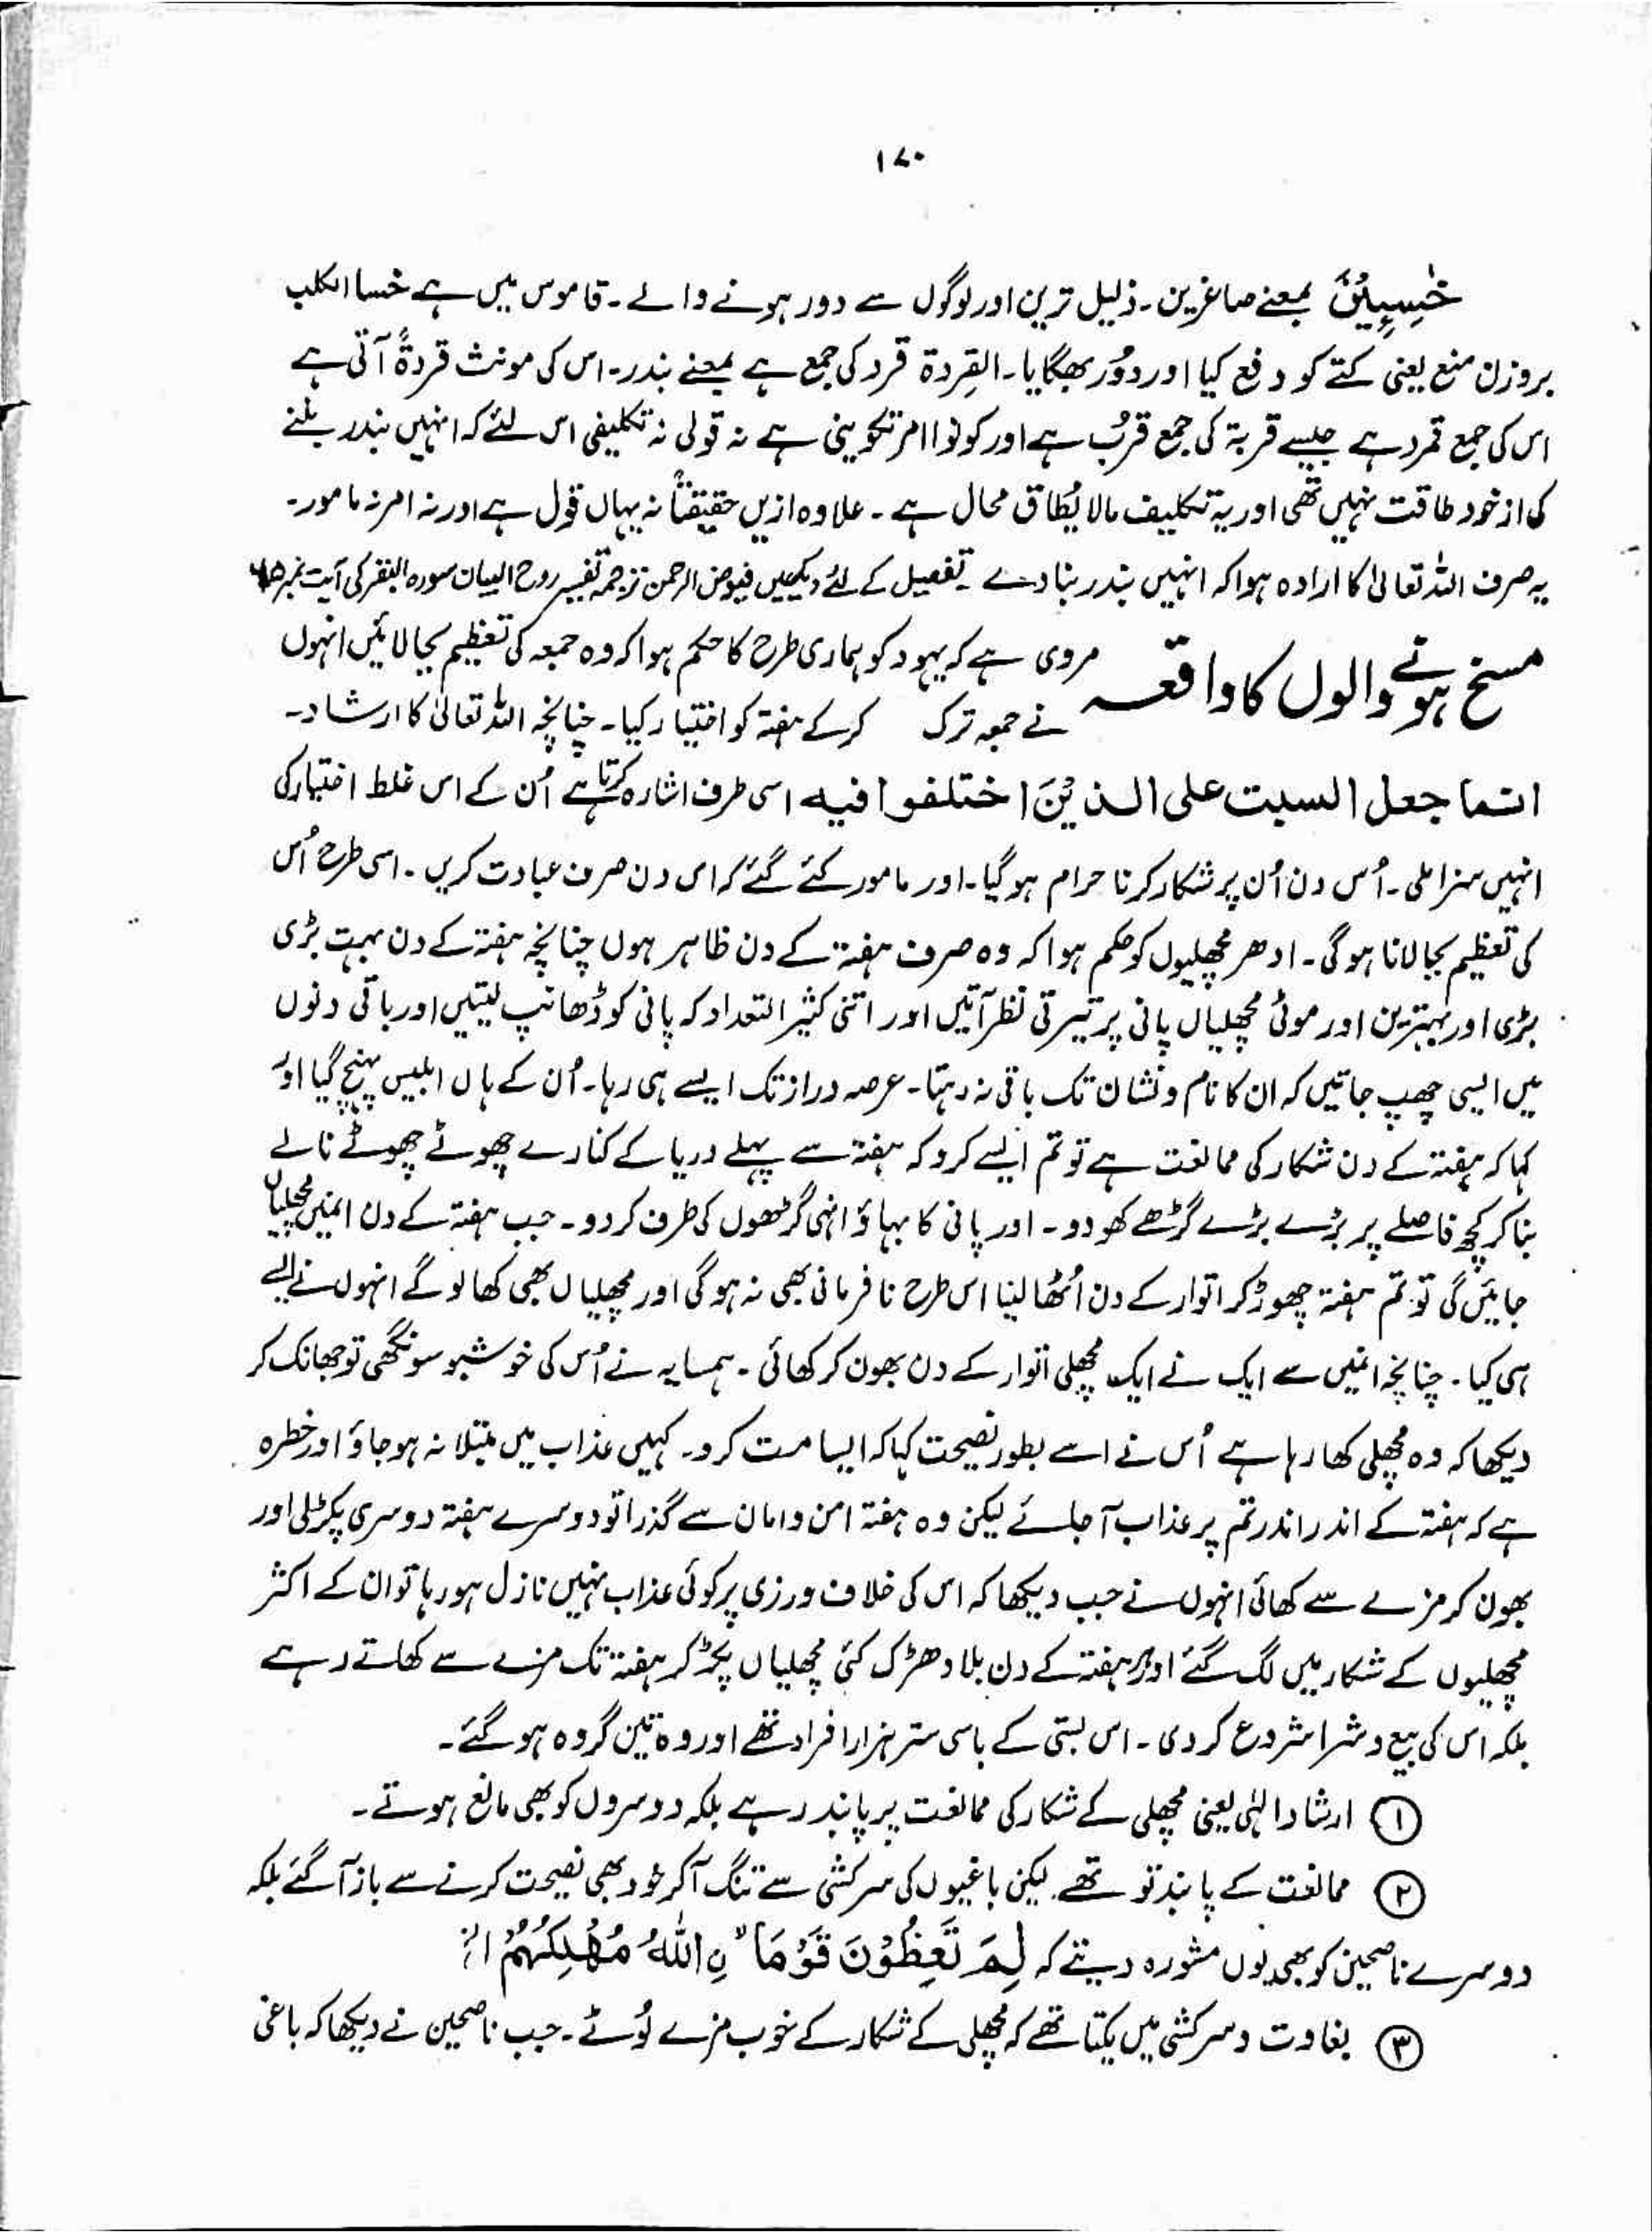 ۱۷۰
خٰسِـِٕیْنَ بمعنے صاغرین۔ ذلیل ترین اور لوگوں سے دور ہونے والے۔ قاموس میں ہے خسا الکلب
بروزن منع یعنی کتے کو دفع کیا اور دُور بھگایا۔ القِردۃ قرد کی جمع ہے بمعنے بندر۔ اس کی مونث قردۃً آتی ہے
اس کی جمع قرد ہے جیسے قربۃ کی جمع قربُ ہے اور کونوا امر تکوینی ہے نہ قولی نہ تکلیفی اس لئے کہ انہیں بندر بننے
کی از خود طاقت نہیں تھی اور یہ تکلیف مالا یُطاق محال ہے۔ علاوہ ازیں حقیقتاً نہ یہاں قول ہے اور نہ امر نہ مامور۔
یہ صرف اللہ تعالیٰ کا ارادہ ہوا کہ انہیں بندر بنا دے۔ تفصیل کے لئے دیکھیں فیوض الرحمن ترجمہ تفسیر روح البیان سورہ البقر کی آیت نمبر ۶۵
مسخ ہونے والوں کا واقعہ مروی ہے کہ یہود کو ہماری طرح کا حکم ہوا کہ وہ جمعہ کی تعظیم بجا لائیں انہوں
نے جمعہ ترک کر کے ہفتہ کو اختیار کیا۔ چنانچہ اللہ تعالیٰ کا ارشاد۔
انما جعل السبت علی الذیْنَ اختلفوا فیہ اسی طرف اشارہ کرتا ہے اُن کے اس غلط اختیار کی
انہیں سزا ملی۔ اُس دن اُن پر شکار کرنا حرام ہوگیا۔ اور مامور کئے گئے کہ اس دن صرف عبادت کریں۔ اسی طرح اُس
کی تعظیم بجا لانا ہوگی۔ ادھر مچھلیوں کو حکم ہوا کہ وہ صرف ہفتہ کے دن ظاہر ہوں چنانچہ ہفتہ کے دن بہت بڑی
بڑی اور بہترین اور موٹی مچھلیاں پانی پر تیرتی نظر آتیں اور اتنی کثیر التعداد کہ پانی کو ڈھانپ لیتیں اور باقی دنوں
میں ایسی چھپ جاتیں کہ ان کا نام و نشان تک باقی نہ رہتا۔ عرصہ دراز تک ایسے ہی رہا۔ اُن کے ہاں ابلیس پہنچ گیا اور
کہا کہ ہفتہ کے دن شکار کی ممانعت ہے تو تم ایسے کرو کہ ہفتہ سے پہلے دریا کے کنارے چھوٹے چھوٹے نالے
بنا کر کچھ فاصلے پر بڑے بڑے گڑھے کھودو۔ اور پانی کا بہاؤ انہی گڑھوں کی طرف کر دو۔ جب ہفتہ کے دن انمیں مچھلیاں
جائیں گی تو تم ہفتہ چھوڑ کر اتوار کے دن اُٹھا لینا اس طرح نافرمانی بھی نہ ہوگی اور مچھلیاں بھی کھا لو گے انہوں نے ایسے
ہی کیا۔ چنانچہ انمیں سے ایک نے ایک مچھلی اتوار کے دن بھون کر کھائی۔ ہمسایہ نے اُس کی خوشبو سونگھی تو جھانک کر
دیکھا کہ وہ مچھلی کھا رہا ہے اُس نے اسے بطور نصیحت کہا کہ ایسا مت کرو۔ کہیں عذاب میں مبتلا نہ ہو جاؤ اور خطرہ
ہے کہ ہفتہ کے اندر اندر تم پر عذاب آ جائے لیکن وہ ہفتہ امن و امان سے گذرا تو دوسرے ہفتہ دوسری پکڑ لی اور
بھون کر مزے سے کھائی انہوں نے جب دیکھا کہ اس کی خلاف ورزی پر کوئی عذاب نہیں نازل ہو رہا تو ان کے اکثر
مچھلیوں کے شکار میں لگ گئے اور ہر ہفتہ کے دن بلا دھڑک کئی مچھلیاں پکڑ کر ہفتہ تک مزے سے کھاتے رہے
بلکہ اس کی بیع و شرا شروع کر دی۔ اس بستی کے باسی ستر ہزار افراد تھے اور وہ تین گروہ ہو گئے۔
① ارشاد الٰہی یعنی مچھلی کے شکار کی ممانعت پر پابند رہے بلکہ دوسروں کو بھی مانع ہوتے۔
② ممانعت کے پابند تو تھے لیکن باغیوں کی سرکشی سے تنگ آ کر خود بھی نصیحت کرنے سے باز آ گئے بلکہ
دوسرے ناصحین کو بھی یوں مشورہ دیتے کہ لِمَ تَعِظُوْنَ قَوْمَا ۙنِ اللہُ مُھْلِکُھُمْ الخ
③ بغاوت و سرکشی میں یکتا تھے کہ مچھلی کے شکار کے خوب مزے لُوٹے۔ جب ناصحین نے دیکھا کہ باغی